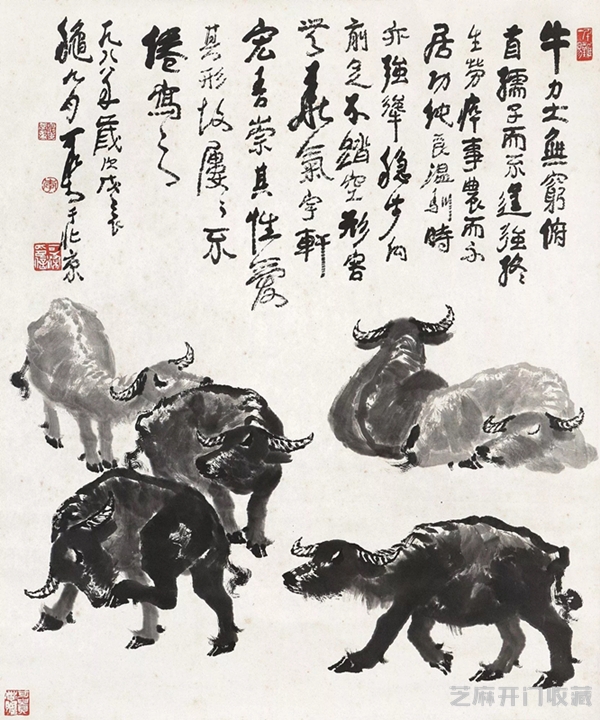 牛力大無窮俯
首孺子而不逞強終
生勞瘁事農而不
居功純良温馴時
亦強犟穩步向
前足不踏空形容
無華氣宇軒
宏吾崇其性愛
其形故屢々不
倦寫之
一九八八年歲次戊辰
龝九月可染于北京
芝麻开门收藏